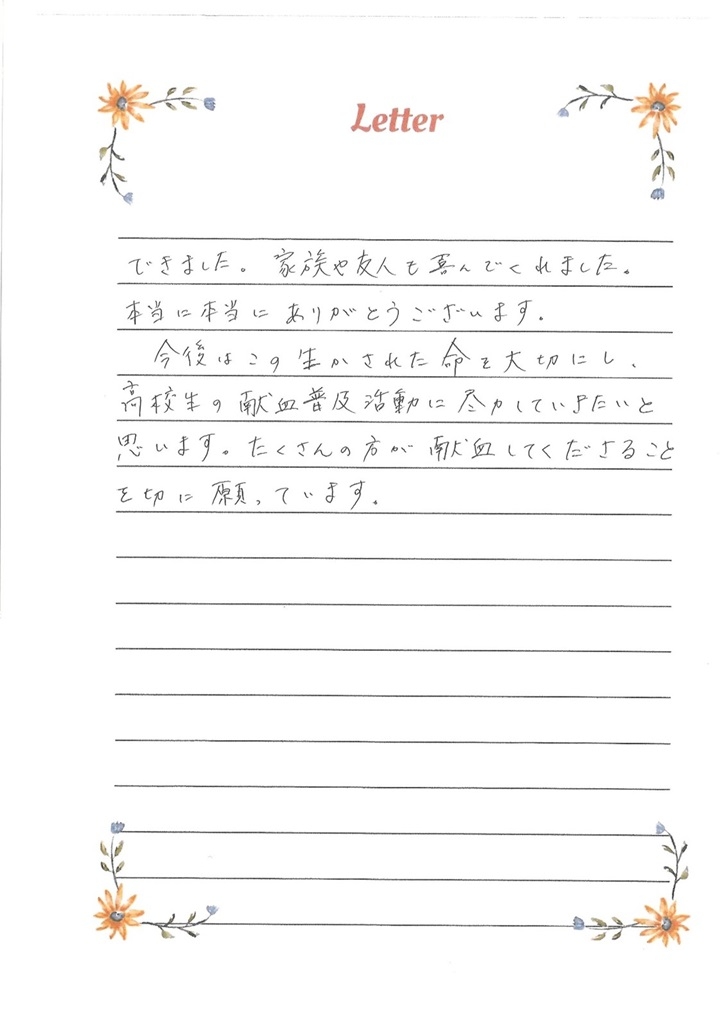 Letter
できました。家族や友人も喜んでくれました。
本当に本当にありがとうございます。
今後はこの生かされた命を大切にし、
高校生の献血普及活動に尽力していきたいと
思います。たくさんの方が献血してくださること
を切に願っています。